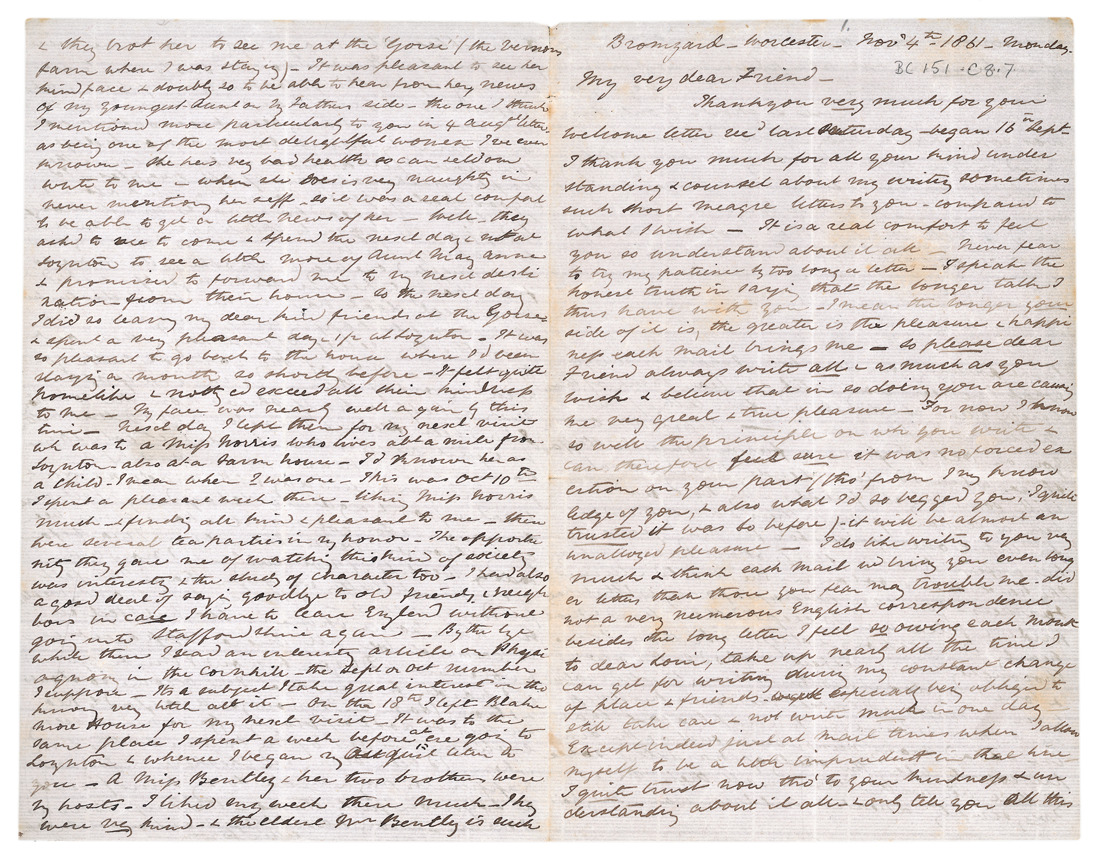 Bromyard - Worcester - Novr 4th 1861 - Monday.
BC 151 . C8.7
My very dear Friend -
Thank you very much for your
welcome letter recd last Saturday - began 16th Sept -
I thank you much for all your kind under
standing & counsel about my writing sometimes
such short meagre letters to you - compared to
what I wish - It is a real comfort to feel
you so understand about it all - Never fear
to try my patience by too long a letter - I speak the
honest truth in sayg that the longer talk I
thus have with you - I mean the longer your
side of it is, the greater is the pleasure & happi
ness each mail brings me - so please dear
Friend always write all & as much as you
wish & believe that in so doing you are causing
me very great & true pleasure - For now I know
so well the principle on wh you write &
can therefore feel sure it was no forced ex
ertion on your part (tho' from I my know
ledge of you, & also what I'd so begged you, I quite
trusted it was so before) - it will be almost an
unalloyed pleasure - I do like writing to you very
much & think each mail will bring you even long
er letters than those you fear may trouble me - did
not a very numerous English correspondence
besides the long letter I feel so owing each month
to dear Loui, take up nearly all the time I
can get for writing during my constant change
of place & friends - especially being obliged to
still take care & not write much in one day
Except indeed just at mail times when I allow
myself to be a little imprudent in that line -
I quite trust now tho' to your kindness & un
derstanding about it all - & only tell you all this
& they brot her to see me at the 'Gorse' (the Vernons
farm where I was staying) - It was pleasant to see her
kind face & doubly so to be able to hear from her news
of my youngest Aunt on my Fathers side - the one I think
I mentioned more particularly to you in 4 Augst letter -
as being one of the most delightful women I've ever
known - She has very bad health so can seldom
write to me - & when she does is very naughty in
never mentiong her self - so it was a real comfort
to be able to get a little news of her - Well - they
asked to me to come & spend the next day & night at
Loynton to see a little more of Aunt Mary Anne
& promised to forward me to my next desti
nation from their house - so the next day
I did so leavg my dear kind friends at the Gorse -
& spent a very pleasant day - 1/2 at Loynton - It was
so pleasant to go back to the house where I'd been
staying a month so shortly before - I felt quite
homelike & nothg c'd exceed all their kindness
to me - My face was nearly well again by this
time - Next day I left them for my next visit
wh was to a Miss Norris who lives abt a mile from
Loynton - also at a Farm house - I'd known her as
a child - I mean when I was one - This was Oct 10th
I spent a pleasant week there - liking Miss Norris
much - & finding all kind & pleasant to me - there
were several tea parties in my honor - The opportu
nity they gave me of watching this kind of society
was interestg & the study of character too - I had also
a good deal of sayg goodbye to old friends & neigh
bors in case I have to leave England without
going into Staffordshire again - By the bye
while there I read an interestg article on Physi
ognomy in the Cornhill - the Sept or Oct number
I suppose - It's a subject I take great interest in tho
knowing very little abt it - On the 18th I left Blake
more House for my next visit - It was to the
same place I spent a week at before going to
Loynton & whence I began my August letter to
you - A Miss Bentley & her two brothers were
my hosts - I liked my week there much - They
were very kind - & the eldest Mr Bentley is such